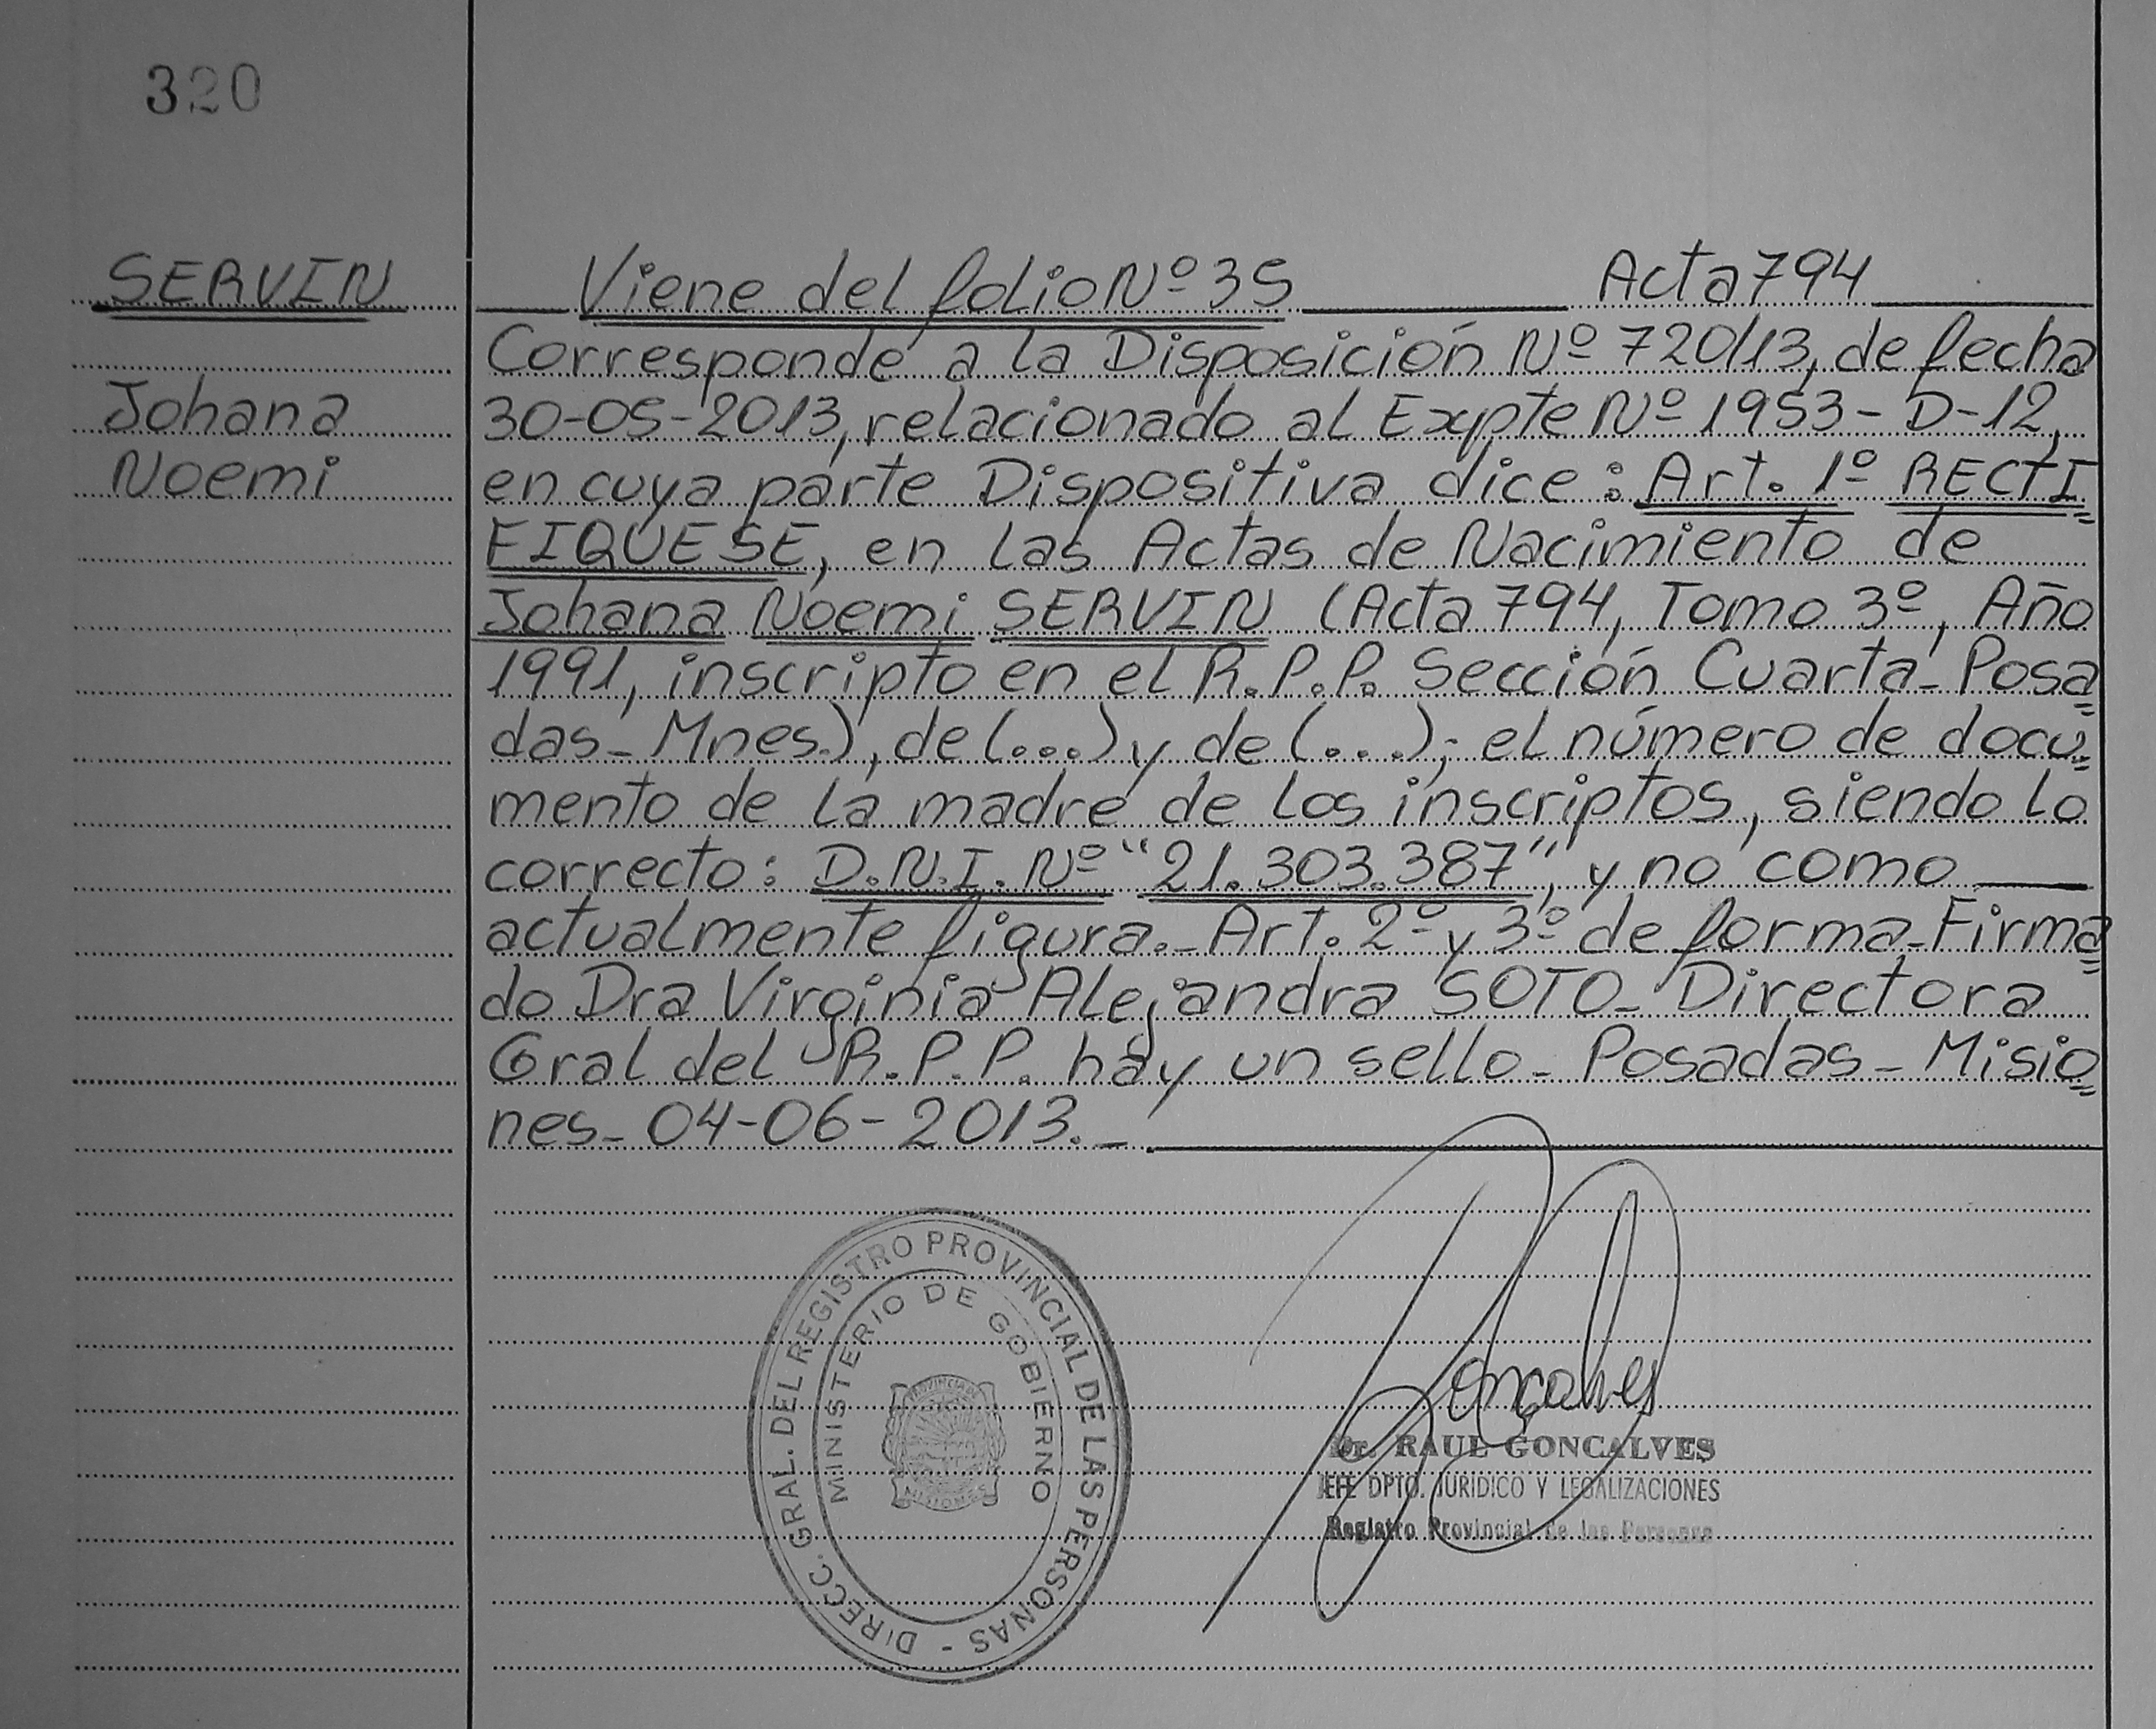 320
SERVIN
Johana
Noemi
Viene del folio Nº 35 Acta 794
Corresponde a la Disposición Nº 720/13, de fecha
30-05-2013, relacionado al Expte Nº 1953-D-12,
en cuya parte Dispositiva dice: Art. 1º RECTI
FIQUESE, en las Actas de Nacimiento de
Johana Noemi SERVIN (Acta 794, Tomo 3º, Año
1991, inscripto en el R.P.P. Sección Cuarta- Posa
das- Mnes.), de (...) y de (...); el número de docu=
mento de la madre de los inscriptos, siendo lo
correcto: D.N.I. Nº "21.303.387", y no como
actualmente figura.- Art. 2º y 3º de forma- Firma
do Dra Virginia Alejandra SOTO- Directora
Gral del R.P.P. hay un sello- Posadas- Misio
nes- 04-06-2013.-
DIRECC. GRAL. DEL REGISTRO PROVINCIAL DE LAS PERSONAS -
MINISTERIO DE GOBIERNO
PROVINCIA DE
MISIONES
Goncalves
Dr. RAUL GONCALVES
JEFE DPTO. JURIDICO Y LEGALIZACIONES
Registro Provincial de las Personas